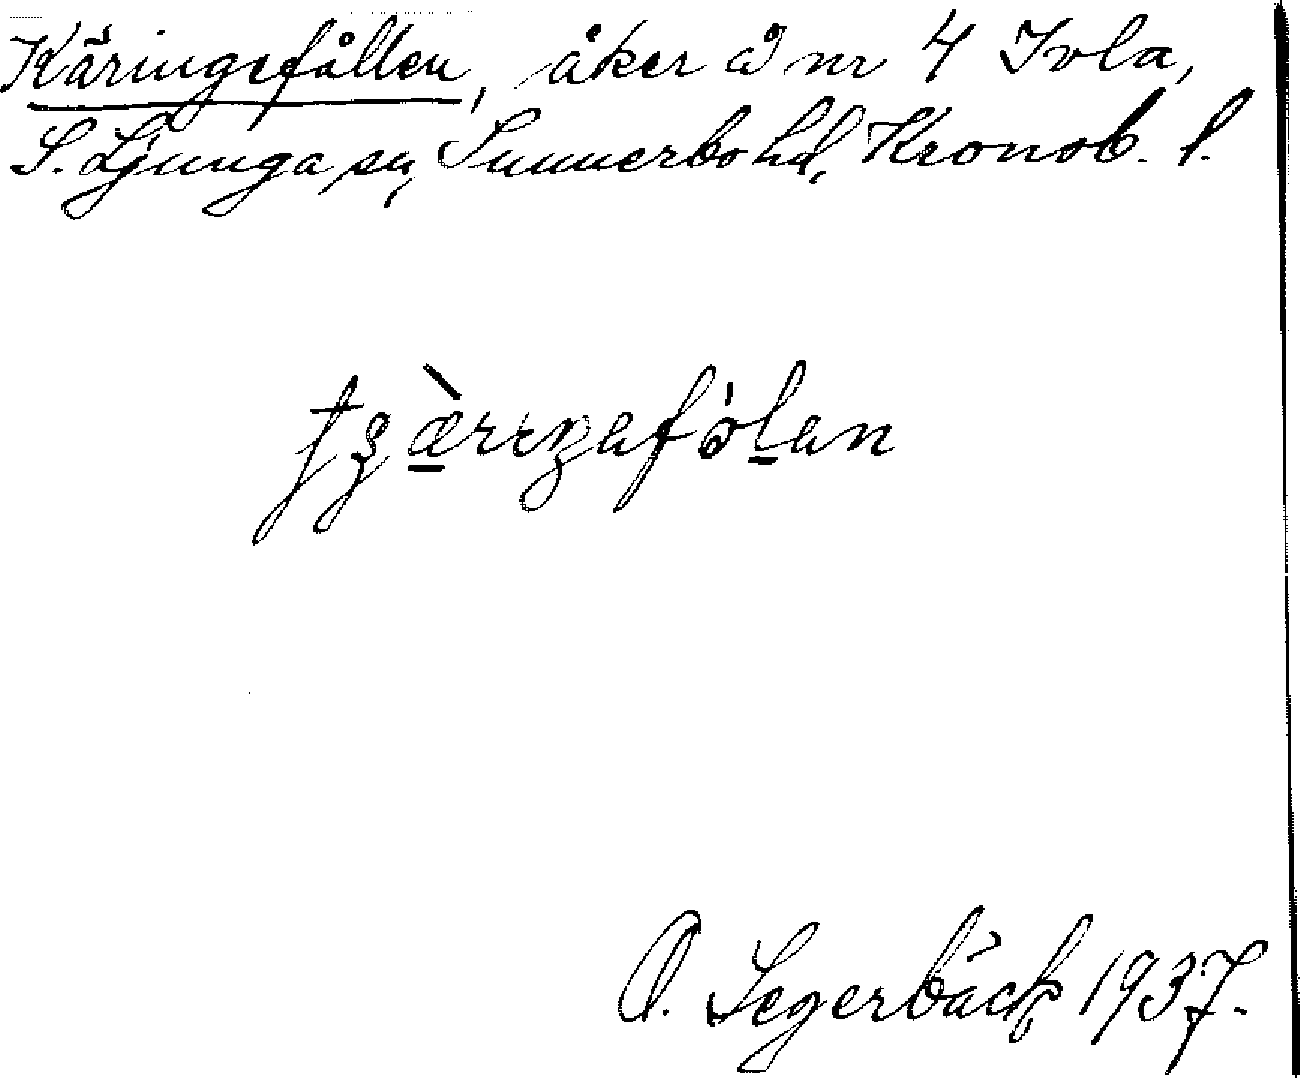 Käringefållen, åker å nr 4 Ivla,
S. Ljunga sn, Sunnerbo hd, Kronob. l.
O. Segerbäck 1937.